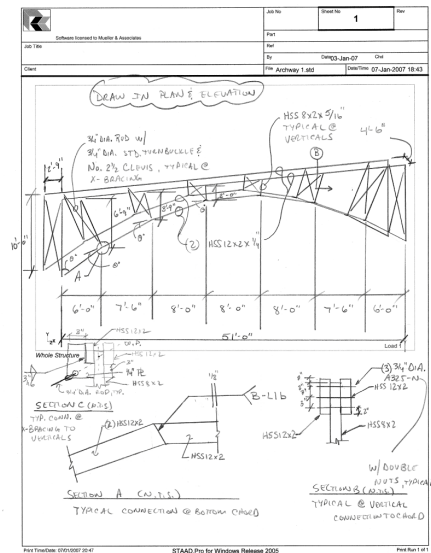 Job No
Sheet No
1
Rev
Software licensed to Mueller & Associates
Part
Job Title
Ref
By
Date03-Jan-07
Chd
Client
File Archway 1.std
Date/Time 07-Jan-2007 18:43
DRAW IN PLAN & ELEVATION
3/4" DIA. ROD W/
3/4" DIA. STD. TURNBUCKLE &
No. 2 1/2 CLEVIS, TYPICAL @
X-BRACING
HSS 8x2x 5/16"
TYPICAL @
VERTICALS
4'-6"
B
2'-9"
6'-9"
(2) HSS12x2x 1/4"
10'-
A
6'-0"
7'-6"
8'-0"
8'-0"
8'-0"
7'-6"
6'-0"
51'-0"
Load 1
Whole Structure
HSS12x2
TYP.
HSS12x2
HSS8x2
3/4" DIA. ROD, TYP.
SECTION C (N.T.S.)
TYP. CONN. @
X-BRACING TO
VERTICALS
(2) HSS12x2
HSS12x2
1/2"
B-L1b
SECTION A (N.T.S.)
TYPICAL CONNECTION @ BOTTOM CHORD
(3) 3/4" DIA.
A325-N
HSS 12x2
HSS12x2
HSS8x2
W/ DOUBLE
NUTS, TYPICAL
SECTION B (N.T.S.)
TYPICAL @ VERTICAL
CONNECTION TO CHORD
Print Time/Date: 07/01/2007 20:47
STAAD.Pro for Windows Release 2005
Print Run 1 of 1